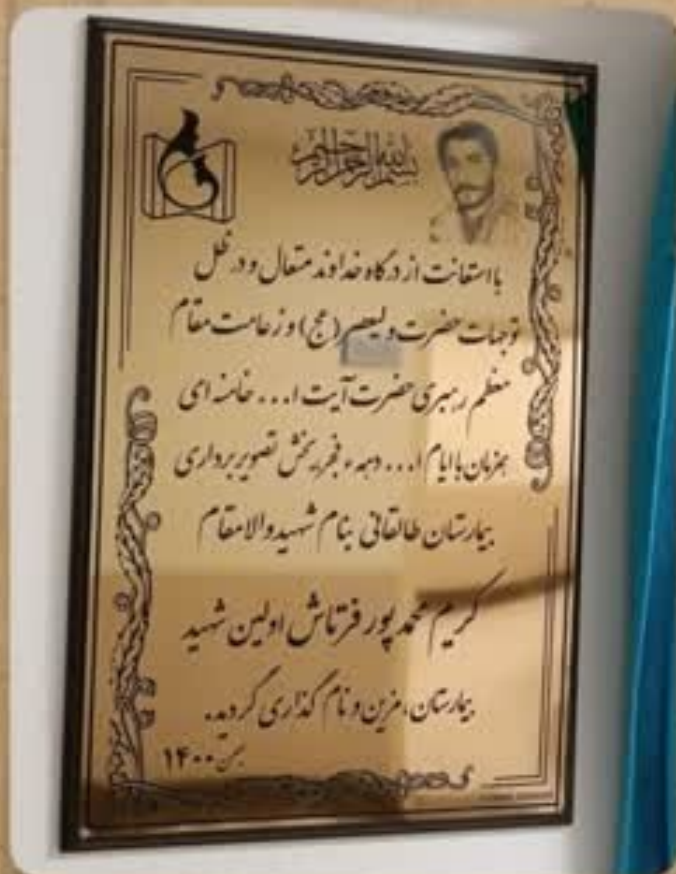 بسم الله الرحمن الرحیم
با استعانت از درگاه خداوند متعال و در ظل
توجهات حضرت ولیعصر (عج) و زعامت مقام
معظم رهبری حضرت آیت ا... خامنه ای
همزمان با ایام ا... دهه فجر، بخش تصویربرداری
بیمارستان طالقانی بنام شهید والامقام
کریم محمدپور فرتاش اولین شهید
بیمارستان، مزین و نام گذاری گردید.
بهمن ۱۴۰۰